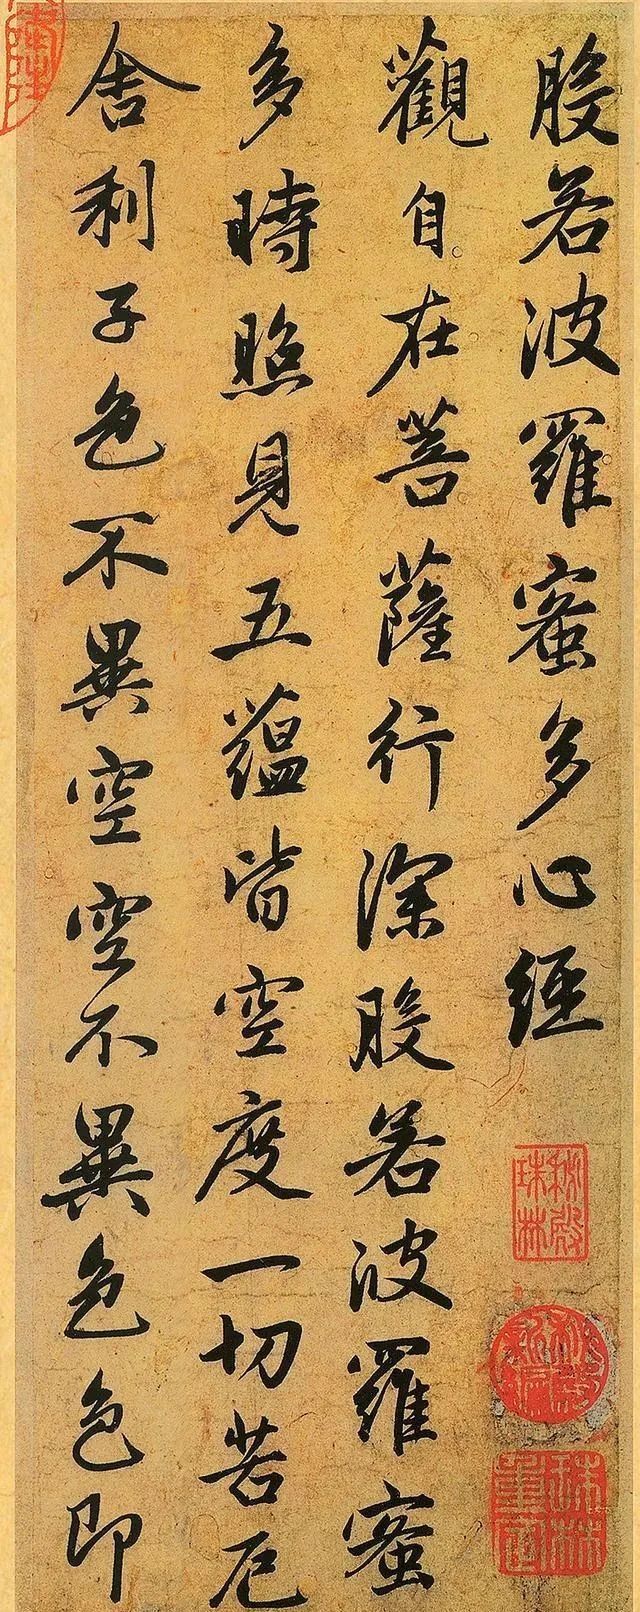 般若波羅蜜多心經
秘殿珠林
秘殿新編
珠林重定
觀自在菩薩行深般若波羅蜜
多時照見五蘊皆空度一切苦厄
舍利子色不異空空不異色色即